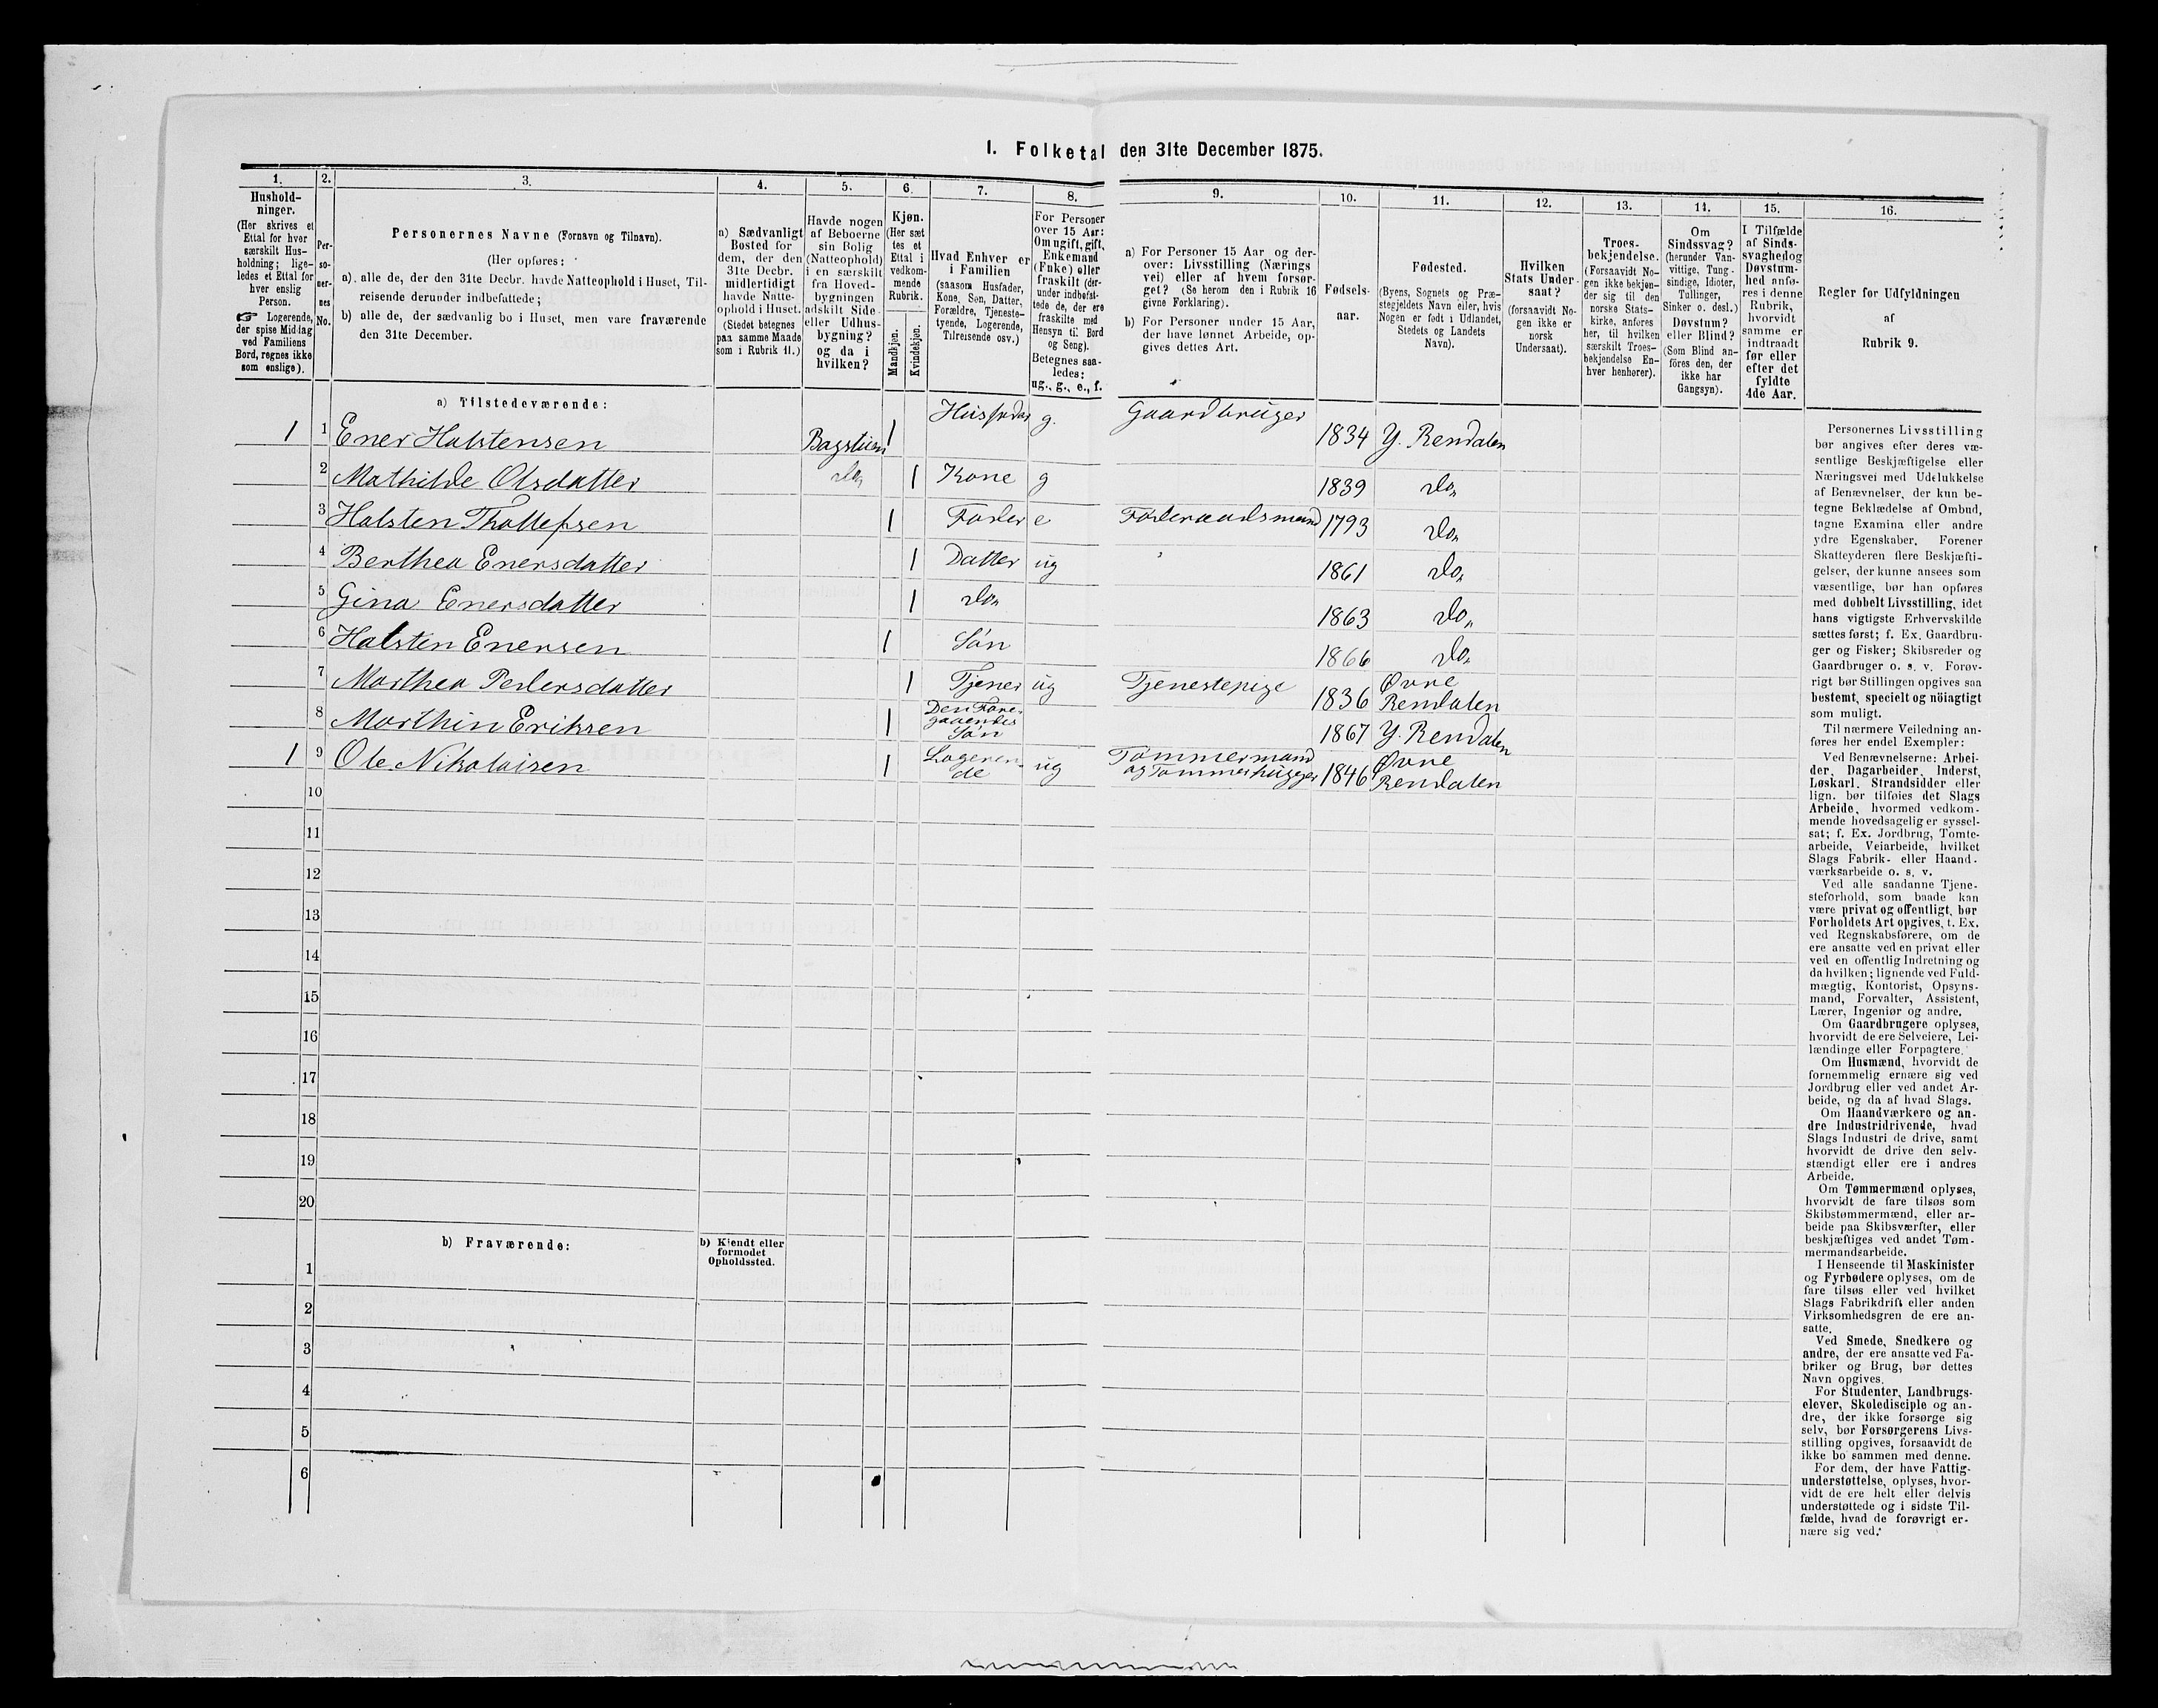 I. Folketal den 31te December 1875.
1. 2. 3. 4. 5. 6. 7. 8. 9. 10. 11. 12. 13. 14. 15. 16.
Hushold-
ninger.
(Her skrives et
Ettal for hver
særskilt Hus-
holdning; lige-
ledes et Ettal for
hver enslig
Person.
☞ Logerende,
der spise Middag
ved Familiens
Bord, regnes ikke
som enslige).
Per-
so-
ner-
nes
No.
Personernes Navne (Fornavn og Tilnavn).
(Her opføres:
a) alle de, der den 31te Decbr. havde Natteophold i Huset, Til-
reisende derunder indbefattede;
b) alle de, der sædvanlig bo i Huset, men vare fraværende
den 31te December.
a) Sædvanligt
Bosted for
dem, der den
31te Decbr.
midlertidigt
havde Natte-
ophold i Huset.
(Stedet betegnes
paa samme Maade
som i Rubrik 11.)
Havde nogen
af Beboerne
sin Bolig
(Natteophold)
i en særskilt
fra Hoved-
bygningen
adskilt Side-
eller Udhus-
bygning?
og da i
hvilken?
Kjøn.
(Her sæt
tes et
Ettal i
vedkom-
mende
Rubrik.
Mandkjøn.
Kvindekjøn.
Hvad Enhver er
i Familien
(saasom Husfader,
Kone, Søn, Datter,
Forældre, Tjeneste-
tyende, Logerende,
Tilreisende osv.)
For Personer
over 15 Aar:
Om ugift, gift,
Enkemand
(Enke) eller
fraskilt (der-
under indbefat-
tede de, der ere
fraskilte med
Hensyn til Bord
og Seng).
Betegnes saa-
ledes:
ug., g., e., f.
a) For Personer 15 Aar og der-
over: Livsstilling (Nærings
vei) eller af hvem forsør-
get? (Se herom den i Rubrik 16
givne Forklaring).
b) For Personer under 15 Aar,
der have lønnet Arbeide, op-
gives dettes Art.
Fødsels-
aar.
Fødested.
(Byens, Sognets og Præ-
stegjeldets Navn eller, hvis
Nogen er født i Udlandet,
Stedets og Landets
Navn).
Hvilken
Stats Under-
saat?
(forsaavidt No-
gen ikke er
norsk
Undersaat).
Troes-
bekjendelse.
(Forsaavidt No-
gen ikke bekjen-
der sig til den
norske Stats-
kirke, anføres
her, til hvilken
særskilt Troes-
bekjendelse En-
hver henhører).
Om
Sindssvag?
(herunder Van-
vittige, Tung-
sindige, Idioter,
Tullinger,
Sinker o. desl.)
Døvstum?
eller Blind?
(Som Blind an-
føres den, der
ikke har
Gangsyn).
I Tilfælde
af Sinds-
svaghed og
Døvstum-
hed anfø-
res i denne
Rubrik,
hvorvidt
samme er
indtraadt
før eller
efter det
fyldte
4de Aar.
Regler for Udfyldningen
af
Rubrik 9.
a) Tilstedeværende:
1 1 Ener Halstensen Bagstuen 1 Husfader g. Gaardbruger 1834 Y. Rendalen
2 Mathilde Olsdatter do, 1 Kone g 1839 do,
3 Halsten Thollefsen 1 Fader e Föderaadsmand 1793 do,
4 Berthea Enersdatter 1 Datter ug 1861 do,
5 Gina Enersdatter 1 do, 1863 do,
6 Halsten Enersen 1 Sön 1866 do,
7 Marthea Pedersdatter 1 Tjener ug Tjenestepige 1836 Øvre Rendalen
8 Marthin Eriksen 1 Den Fore-
gaaendes
Sön 1867 Y. Rendalen
1 9 Ole Nikolaisen 1 Logeren-
de ug Tömmermand
og Tömmerhugger 1846 Øvre Rendalen
10
11
12
13
14
15
16
17
18
19
20
b) Fraværende:
b) Kjendt eller
formodet
Opholdssted.
1
2
3
4
5
6
Personernes Livsstilling
bør angives efter deres væ-
sentlige Beskjæftigelse eller
Næringsvei med Udelukkelse
af Benævnelser, der kun be-
tegne Beklædelse af Ombud,
tagne Examina eller andre
ydre Egenskaber. Forener
Skatteyderen flere Beskjæfti-
gelser, der kunne ansees som
væsentlige, bør han opføres
med dobbelt Livsstilling, idet
hans vigtigste Erhvervskilde
sættes først; f. Ex. Gaardbru-
ger og Fisker; Skibsreder og
Gaardbruger o. s. v. Forøv-
rigt bør Stillingen opgives saa
bestemt, specielt og nöiagtigt
som muligt.
Til nærmere Veiledning an-
føres her endel Exempler:
Ved Benævnelserne: Arbei-
der, Dagarbeider, Inderst,
Løskarl, Strandsidder eller
lign. bør tilføies det Slags
Arbeide, hvormed vedkom-
mende hovedsagelig er syssel-
sat; f. Ex. Jordbrug, Tomte-
arbeide, Veiarbeide, hvilket
Slags Fabrik- eller Haand-
værksarbeide o. s. v.
Ved alle saadanne Tjene-
steforhold, som baade kan
være privat og offentligt, bør
Forholdets Art opgives, t. Ex.
ved Regnskabsførere, om de
ere ansatte ved en privat eller
ved en offentlig Indretning og
da hvilken; lignende ved Fuld-
mægtig, Kontorist, Opsyns-
mand, Forvalter, Assistent,
Lærer, Ingeniør og andre.
Om Gaardbrugere oplyses,
hvorvidt de ere Selveiere, Lei-
lændinge eller Forpagtere.
Om Husmænd, hvorvidt de
fornemmelig ernære sig ved
Jordbrug eller ved andet Ar-
beide, og da af hvad Slags.
Om Haandværkere og an-
dre Industridrivende, hvad
Slags Industri de drive, samt
hvorvidt de drive den selv-
stændigt eller ere i andres
Arbeide.
Om Tømmermænd oplyses,
hvorvidt de fare tilsøs som
Skibstømmermænd, eller ar-
beide paa Skibsværfter, eller
beskjæftiges ved andet Tøm-
mermandsarbeide.
I Henseende til Maskinister
og Fyrbødere oplyses, om de
fare tilsøs eller ved hvilket
Slags Fabrikdrift eller anden
Virksomhedsgren de ere an-
satte.
Ved Smede, Snedkere og
andre, der ere ansatte ved Fa-
briker og Brug, bør dettes
Navn opgives.
For Studenter, Landbrugs-
elever, Skoledisciple og an-
dre, der ikke forsørge sig
selv, bør Forsørgerens Livs-
stilling opgives, forsaavidt de
ikke bo sammen med denne.
For dem, der have Fattig-
understøttelse, oplyses, hvor-
vidt de ere helt eller delvis
understøttede og i sidste Til-
fælde, hvad de forøvrigt er-
nære sig ved.